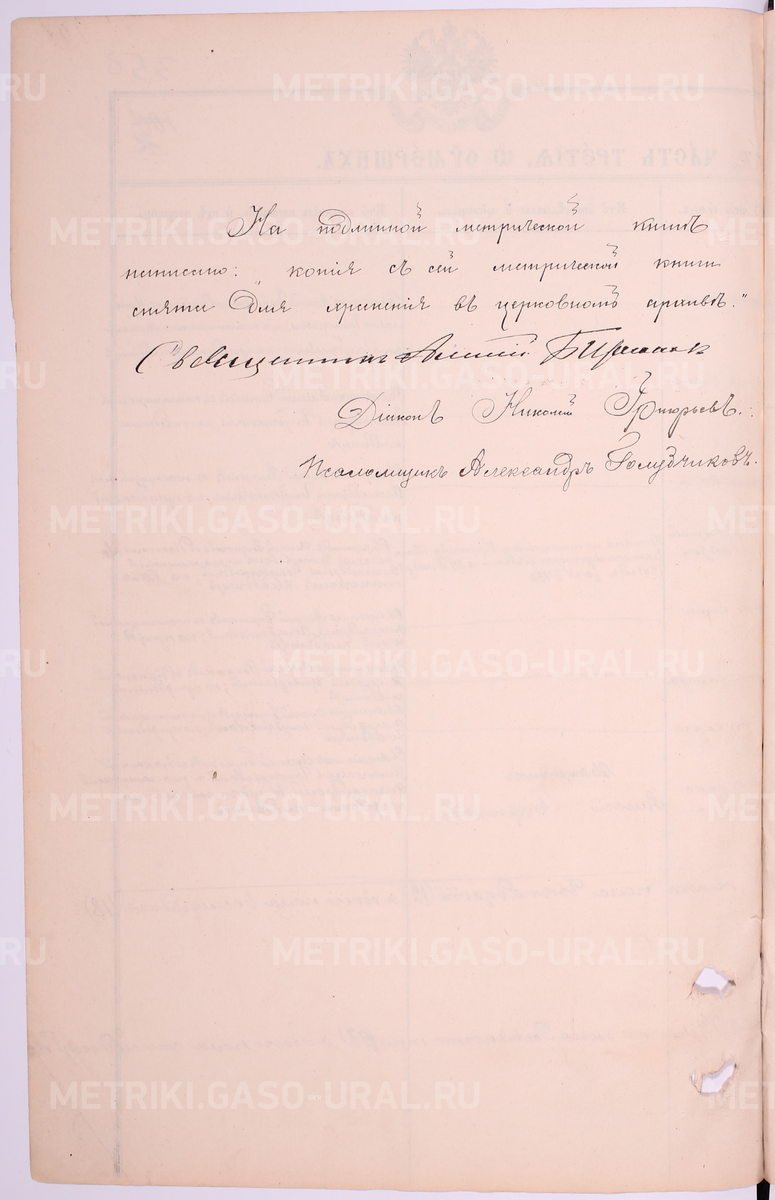 На подлинной метрической книгѣ
написано: "копія съ сей метрической книги
снята для храненія въ церковномъ архивѣ."
Священникъ
Діаконъ Николай Григорьевъ.
Псаломщикъ Александръ Голубчиковъ.
METRIKI.GASO-URAL.RU